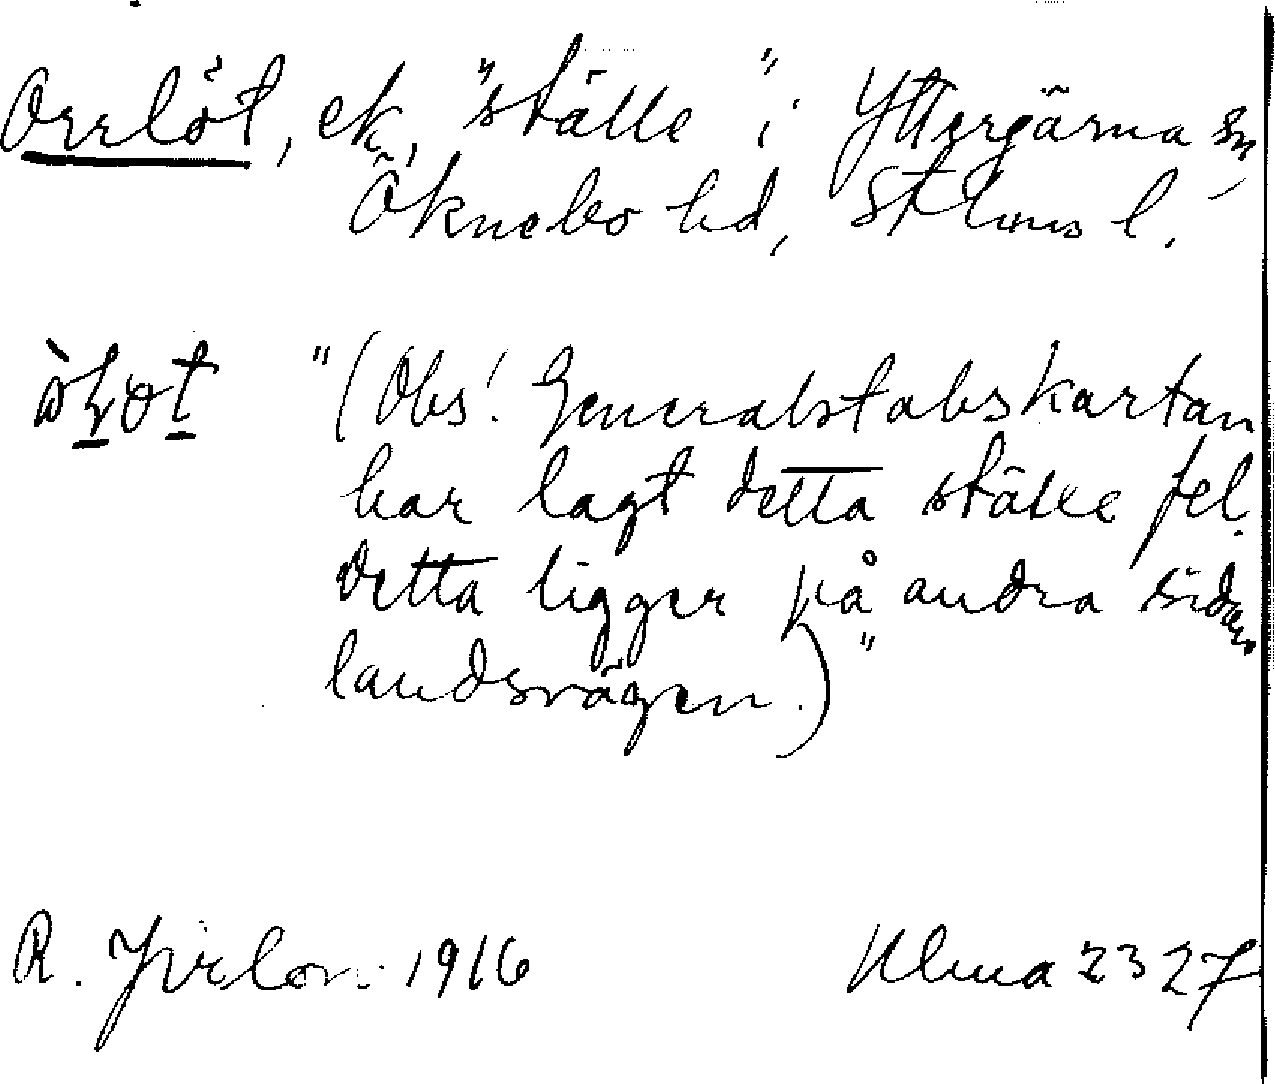 Orrlöt, ek, "ställe" i Ytterjärna sn,
Öknebo hd, Sthms l.
"(Obs! Generalstabskartan
har lagt detta ställe fel.
Detta ligger på andra sidan
landsvägen.)"
R. Jirlow 1916 Ulma 2327